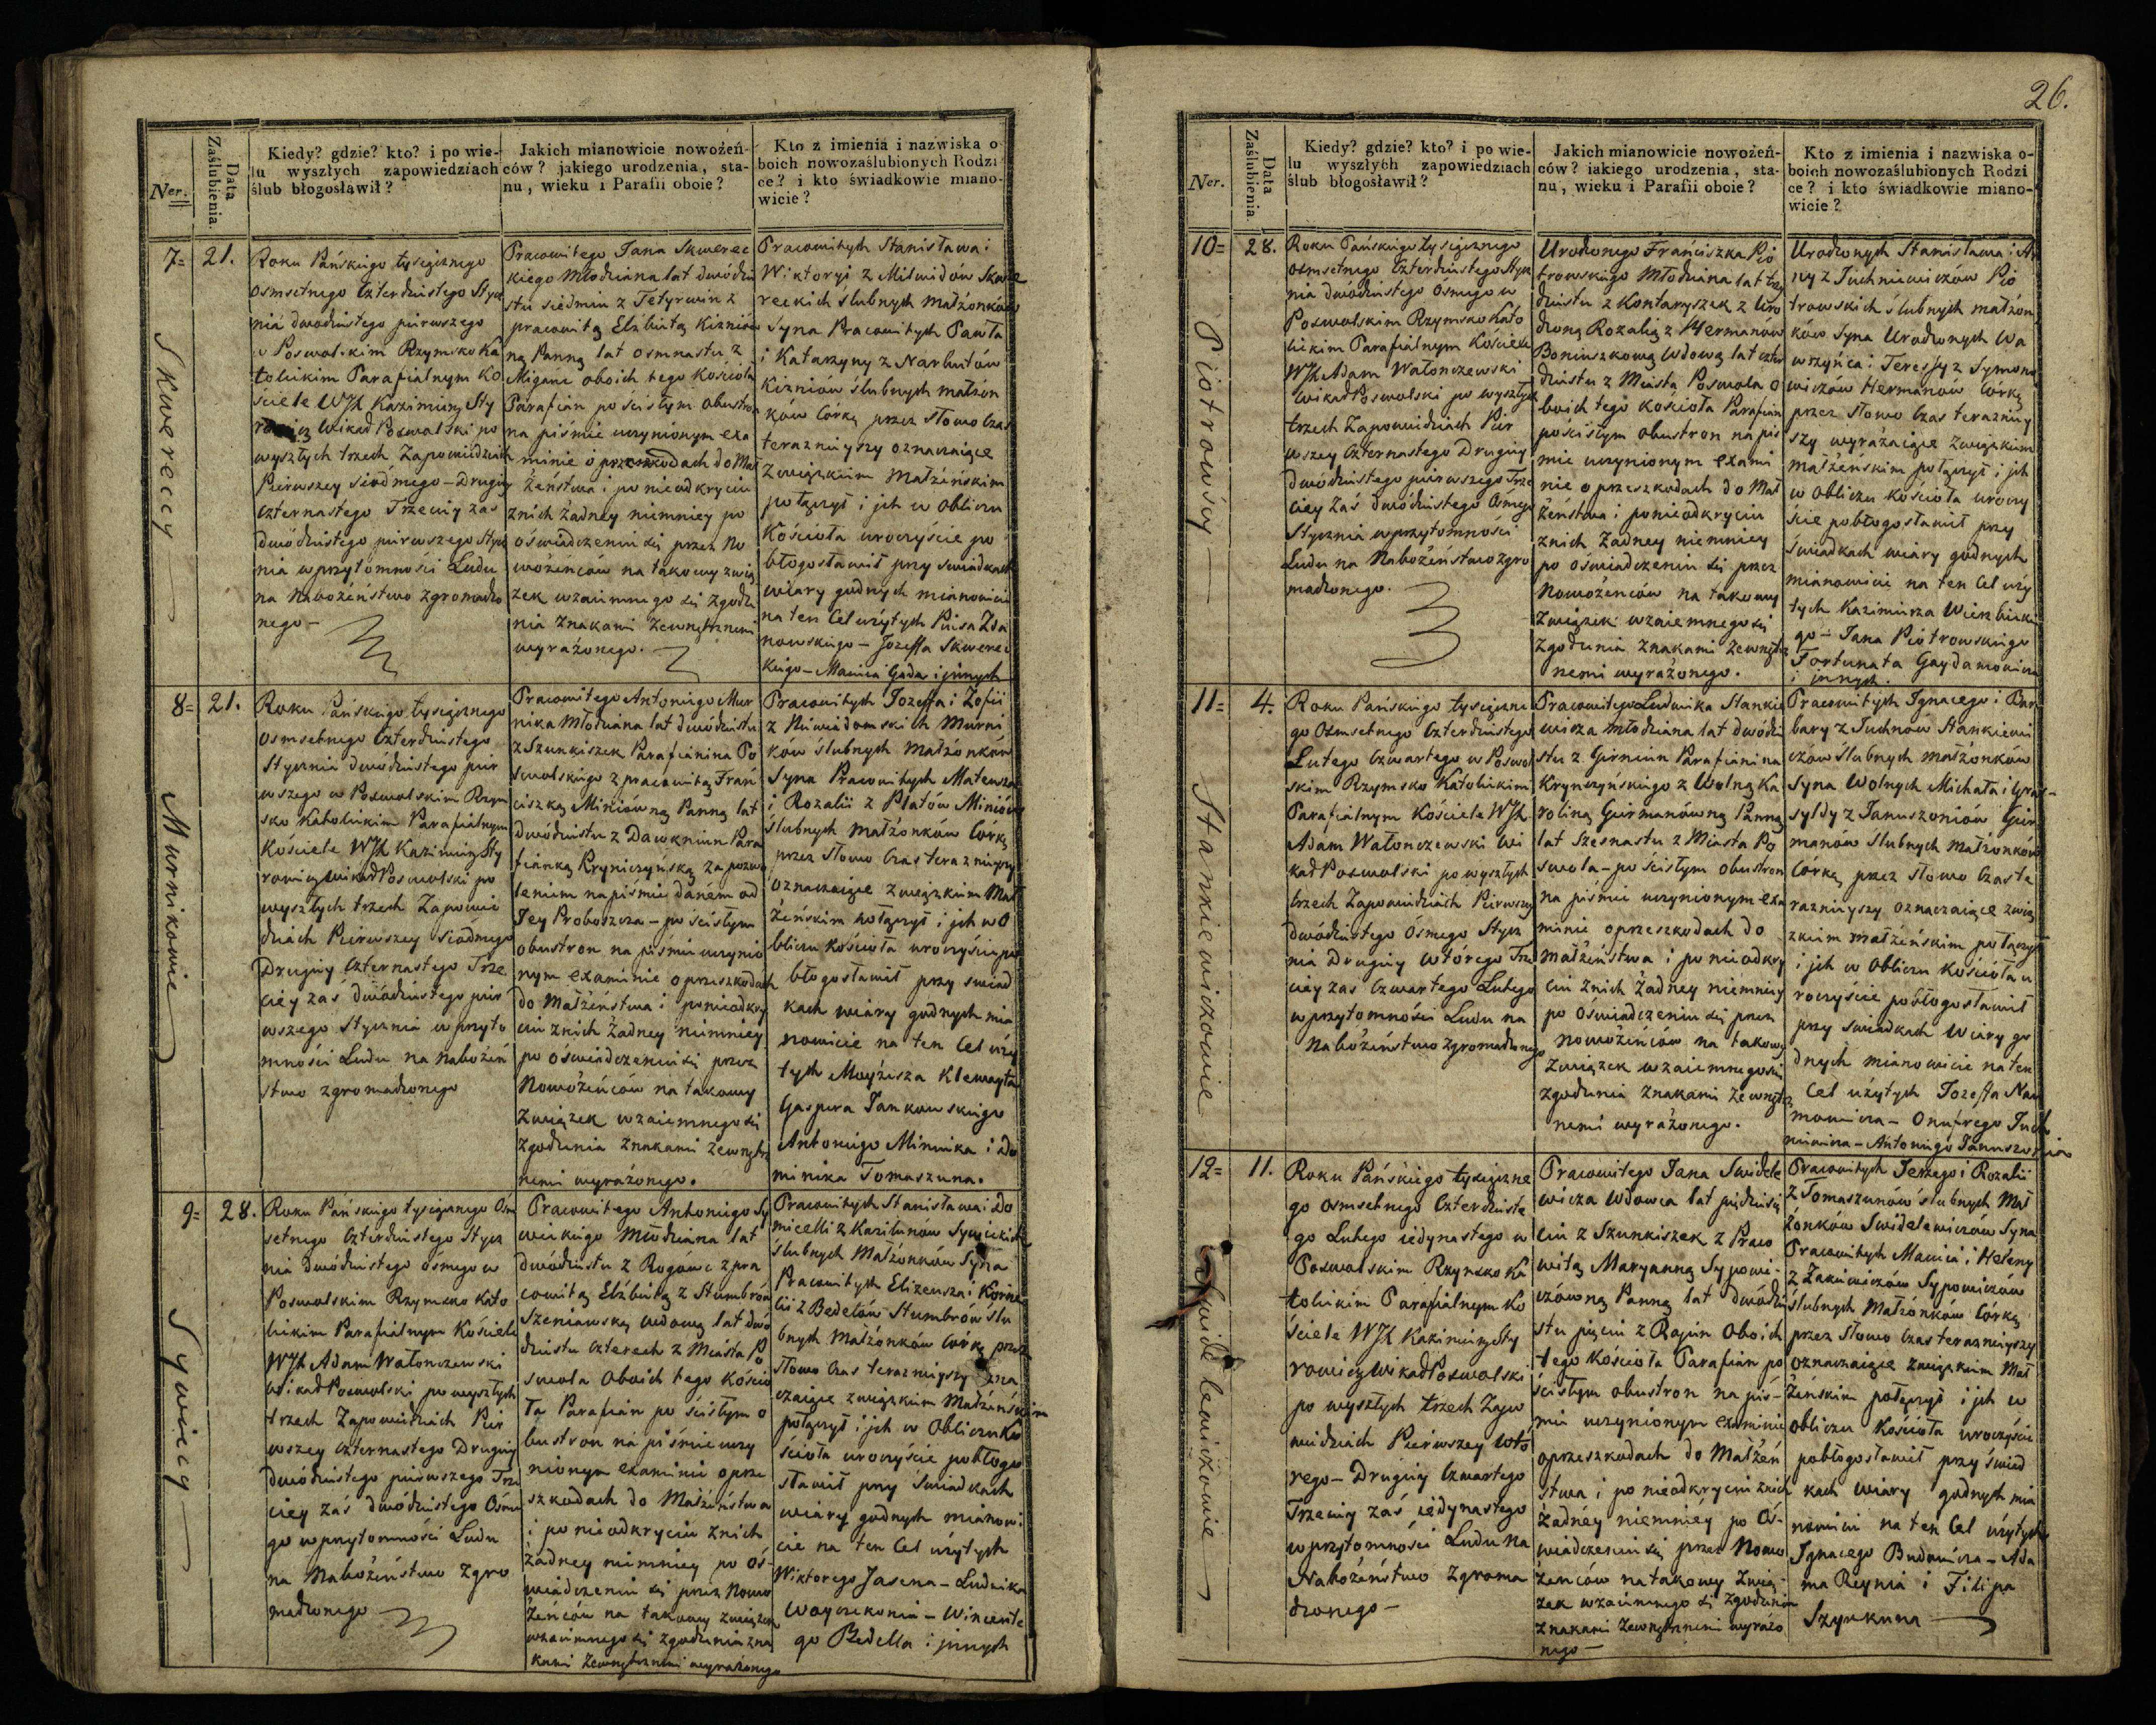 Ner.
Data Zaślubienia.
Kiedy? gdzie? kto? i po wie-
lu wyszłych zapowiedziach
ślub błogosławił?
Jakich mianowicie nowożeń-
ców? jakiego urodzenia, sta-
nu, wieku i Parafii oboie?
Kto z imienia i nazwiska o-
boich nowozaślubionych Rodzi
ce? i kto świadkowie miano-
wicie?
7=
21.
Skwereccy
Roku Pańskiego tysiącznego
osmsetnego Czterdziestego Stycz
nia dwódziestego pierwszego
w Poswolskim Rzymsko Ka
tolickim Parafialnym Ko
sciele WJX Kazimierz Sty
Wikad Poswolski po
wyszłych trzech Zapowiedziach
Pierwszey siódmego – Drugiey
czternastego Trzeciey zas
dwódziestego pierwszego Stycz
nia w przytomności Ludu
na Nabożeństwo zgromadzo
nego –
Pracowitego Jana Skwerec
kiego Młodziana lat dwódzie
stu siedmiu z Tetyrwin z
pracowitą Elżbietą Kiznió
ną Panną lat osmnastu z
Migańc oboich tego Kościoła
Parafian po scisłym obustro
na piśmie uczynionym exa
minie o przeszkodach do Mał
żeństwa i po nieodkryciu
znich żadney niemniey po
oswiadczeniu się przez No
wożeńców na takowy zwią
zek wzaiemnego się zgodze
nia znakami zewnętrznemi
wyrażonego.
Pracowitych Stanisława i
Wiktoryi z Miświdów Skwe
reckich ślubnych małżonków
Syna Pracowitych Pawła
i Katarzyny z Narbutów
Kizniów ślubnych małżon
ków Córkę przez słowo Czas
teraznieyszy oznaczaiące
Związkiem Małżeńskim
połączył i jch w obliczu
Kościoła uroczyście po
błogosławił przy swiadkach
wiary godnych mianowicie
na ten Cel użytych Zda
nowskiego – Jozeffa Skwerec
kiego – Macieia Gada i jnnych
8=
21.
Murnikowie
Roku Pańskiego tysiącznego
Osmsetnego Czterdziestego
Stycznia dwódziestego pier
wszego w Poswolskim Rzym
sko Katolickim Parafialnym
Kościele WJX Kazimierz Sty
rowicz Wikad Poswolski po
wyszłych trzech Zapowie
dziach Pierwszey Siódmego
Drugiey Czternastego Trze
ciey zaś dwódziestego pier
wszego Stycznia w przyto
mności Ludu na nabożeń
stwo zgromadzonego
Pracowitego Antoniego Mur
nika Młodziana lat dwódziestu
z Szunkiszek Parafianina Po
swolskiego z pracowitą Fran
ciszką Miniówną Panną lat
dwódziestu z Dawkniun Para
fianką Krynicżyńską za pozwo
leniem na piśmie daném od
Jey Proboszcza – po ścisłym
obustron na piśmie uczynio
nym examinie o przeszkodach
do małżeństwa i ponieodkry
ciu znich żadney niemniey
po oświadczeniu się przez
Nowożeńców na takowy
związek wzaiemnego się
zgodzenia znakami zewnętrz
nemi wyrażonego.
Pracowitych Jozeffa i Zofii
z Niewiadomskich Murni
ków ślubnych małżonków
Syna Pracowitych Mateusza
i Rozalii z Platów Miniów
Ślubnych małżonków Córkę
przez słowo Czas teraznieyszy
oznaczaiące związkiem Mał
żeńskim połączył i jch w O
bliczu Kościoła uroczyście po
błogosławił przy swiad
kach wiary godnych mia
nowicie na ten Cel uży
tych Moyżesza Klewayta
Gaspera Jankowskiego
Antoniego Miniuka i Do
minika Tomaszuna.
9=
28.
Sywiccy
Roku Pańskiego tysiącznego Osm
setnego Czterdziestego Stycz
nia dwódziestego ósmego w
Poswolskim Rzymsko Kato
lickim Parafialnym Kościele
WJX Adam Wałonczewski
Wikad Poswolski po wyszłych
trzech Zapowiedziach Pier
wszey Czternastego Drugiey
dwódziestego pierwszego Trze
ciey zaś dwódziestego Ósme
go w przytomności Ludu
na Nabożeństwo zgro
madzonego
Pracowitego Antoniego Sy
wickiego Młodziana lat
dwódziestu z Rogówc z pra
cowitą Elżbietą z Stumbrów
Szeniawską wdową lat dwó
dziestu czterech z Miasta Po
swola Oboich tego Kościo
ła Parafian po ścisłym o
bustron na piśmie uczy
nionym examinie o prze
szkodach do Małżeństwa
i po nieodkryciu znich
żadney niemniey po oś-
wiadczeniu się przez Nowo
żeńców na takowy związek
wzaiemnego się zgodzenia zna
kami zewnętrznemi wyrażonego
Pracowitych Stanisława i Do
micelli z Karilunów Sywickich
ślubnych Małżonków Syna
Pracowitych Elizeusza i Korne
lii z Bedelów Stumbrów ślu
bnych Małżonków Córkę przez
słowo Czas teraznieyszy ozna
czaiące związkiem Małżeńskim
połączył i jch w Obliczu Ko
ścioła uroczyście pobłogo
sławił przy świadkach
wiary godnych mianowi
cie na ten Cel użytych
Wiktorego Jasena – Ludwika
Woyczekonia – Wincente
go Bedella i jnnych
26.
Ner.
Data Zaślubienia.
Kiedy? gdzie? kto? i po wie-
lu wyszłych zapowiedziach
ślub błogosławił?
Jakich mianowicie nowożeń-
ców? iakiego urodzenia, sta-
nu, wieku i Parafii oboie?
Kto z imienia i nazwiska o-
boich nowozaślubionych Rodzi
ce? i kto świadkowie miano-
wicie?
10=
28.
Piotrowscy
Roku Pańskiego tysiącznego
osmsetnego Czterdziestego Stycz
nia dwódziestego Osmego w
Poswolskim Rzymsko Kato
lickim Parafialnym Kościele
WJX Adam Wałonczewski
Wikad Poswolski po wyszłych
trzech Zapowiedziach Pier
wszey Czternastego Drugiey
dwódziestego pierwszego Trze
ciey Zaś dwódziestego Ósmego
Stycznia w przytomności
Ludu na Nabożeństwo zgro
madzonego.
Urodzonego Franciszka Pio
trowskiego Młodziana lat trzy
dziestu z Kontaryszek z Uro
dzoną Rozalią z Hermanów
Boniuszkową Wdową lat czter
dziestu z Miasta Poswola o
boich tego Kościoła Parafian
po ścisłym obustron na piś
mie uczynionym exami
nie o przeszkodach do Mał
żeństwa i ponieodkryciu
znich żadney niemniey
po oświadczeniu się przez
Nowożeńców na takowy
Związek wzaiemnego się
zgodzenia znakami zewnętrz
nemi wyrażonego.
Urodzonych Stanisława i An
ny z Juchniewiczów Pio
trowskich ślubnych małżon
ków Syna Urodzonych Wa
wrzyńca i Teressy z Symono
wiczów Hermanów Córkę
przez słowo Czas terazniey
szy wyrażaiące związkiem
małżeńskim połączył i jch
w obliczu Kościoła uroczy
ście pobłogosławił przy
świadkach wiary godnych
mianowicie na ten Cel uży
tych Kazimierza Wierzbicki
go – Jana Piotrowskiego
Fortunata Gaydamowicza
i jnnych.
11=
4.
Stankiewiczowie
Roku Pańskiego tysiączne
go Osmsetnego Czterdziestego
Lutego Czwartego w Poswol
skim Rzymsko Katolickim
Parafialnym Kościele WJX
Adam Wałonczewski Wi
kad Poswolski po wyszłych
trzech Zapowiedziach Pierwszey
dwódziestego Ósmego Stycz
nia Drugiey wtórego Trze
ciey zas Czwartego Lutego
w przytomności Ludu na
Nabożeństwo zgromadzonego
Pracowitego Ludwika Stankie
wicza młodziana lat dwódzie
stu z Girniun Parafianina
Krynczyńskiego z Wolną Ka
roliną Guirmanówną Panną
lat szesnastu z Miasta Po
swola – po ścisłym obustron
na piśmie uczynionym exa
minie o przeszkodach do
małżeństwa i po nieodkry
ciu znich żadney niemniey
po Oświadczeniu się przez
nowożeńców na takowy
Związek wzaiemnego się
zgodzenia znakami zewnętrz
nemi wyrażonego.
Pracowitych Ignacego i Bar
bary z Juchnów Stankiewi
czów Ślubnych małżonków
Syna Wolnych Michała i Gry
syldy z Januszoniów Guir
manów Ślubnych małżonków
Córkę przez słowo Czas te
raznieyszy oznaczaiące zwią
zkiem małżeńskim połączył
i jch w Obliczu Kościoła u
roczyście pobłogosławił
przy swiadkach wiary go
dnych mianowicie na ten
Cel użytych Jozeffa Nau
mowicza – Onufrego Juch
niewicza – Antoniego Januszonia
12=
11.
Swidelewiczowie
Roku Pańskiego tysiączne
go osmsetnego Czterdzieste
go Lutego iedynastego w
Poswolskim Rzymsko Ka
tolickim Parafialnym Ko
ściele WJX Kazimierz Sty
rowicz Wikad Poswolski
po wyszłych trzech Zapo
wiedziach Pierwszey wtó
rego – Drugiey Czwartego
Trzeciey zaś iedynastego
w przytomności Ludu na
Nabożeństwo zgroma
dzonego –
Pracowitego Jana Swidele
wicza Wdowca lat piędziesię
ciu z Szunkiszek z Praco
witą Maryanną Sypowi-
czówną Panną lat dwódzie
stu pięciu z Rajun Oboich
tego Kościoła Parafian po
ścisłym obustron na piś-
mie uczynionym examinie
o przeszkodach do Małżeń
stwa i po nieodkryciu znich
żadnéy niemniéy po Oś-
wiadczeniu się przez Nowo
żeńców na takowy Zwią-
zek wzaiemnego się zgodzenia
znakami zewnętrznemi wyrażo
nego –
Pracowitych Jerzego i Rozalii
z Tomaszunów ślubnych Mał
żonków Swidelewiczów Syna
Pracowitych Macieia i Heleny
z Zakiewiczów Sypowiczów
ślubnych Małżonków Córkę
przez słowo Czas teraznieyszy
oznaczaiące związkiem Mał
żeńskim połączył i jch w
obliczu Kościoła uroczyście
pobłogosławił przy świad
kach wiary godnych mia
nowicie na ten Cel użytych
Ignacego Budowicza – Ada
ma Reynia i Filipa
Szyrkuna